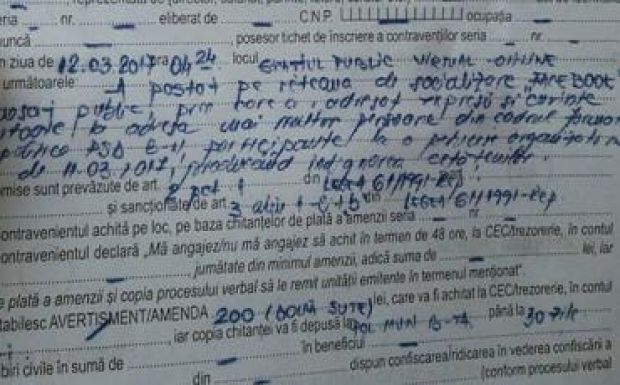 reprezentată de (director,
seria nr. eliberat de C.N.P. ocupația
muncă , posesor tichet de înscriere a contravențiilor seria nr.
în ziua de 12.03.2017 ora 04 24 locul SPAȚIUL PUBLIC VIRTUAL-ONLINE
următoarele A postat pe rețeaua de socializare „FACEBOOK"
mesaj public, prin care a adresat expresii și cuvinte
la adresa mai multor persoane din cadrul
politice PSD B-N participante la o
din 11.03.2017, indignarea cetățenilor.
omise sunt prevăzute de art. 2 pct. 1 din Legea 61/1991-Rep.
și sancționate de art. 3 alin 1 b din Legea 61/1991-Rep.
contravenientul achită pe loc, pe baza chitanțelor de plată a amenzii seria nr.
contravenientul declară „Mă angajez/nu mă angajez să achit în termen de 48 ore, la CEC/trezorerie, în contul
jumătate din minimul amenzii, adică suma de lei, iar
de plată a amenzii și copia procesului verbal să le remit unității emitente în termenul menționat".
stabilesc AVERTISMENT/AMENDA 200 (DOUĂ SUTE) lei, care va fi achitat la CEC/trezorerie, în contul
, iar copia chitanței va fi depusă la POL MUN B-ȚA până la 30 zile
biri civile în sumă de în beneficiul
din dispun confiscarea/ridicarea în vederea confiscării a
(conform procesului verbal